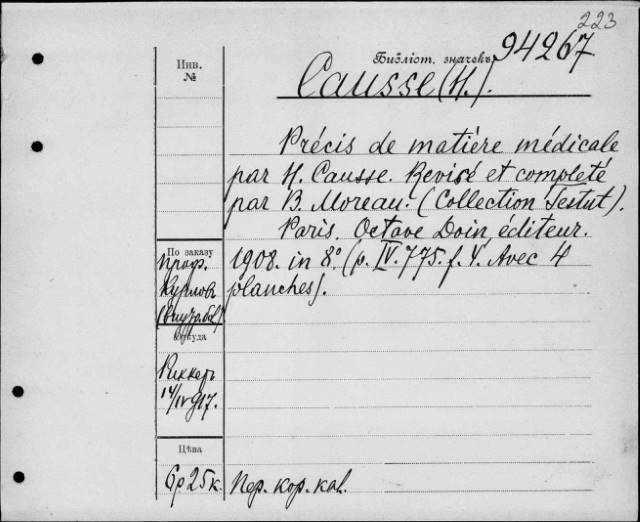 223
Библіот. значекъ 94267
Инв.
№
Causse (H.).
Précis de matière médicale
par H. Causse. Revisé et completé
par B. Moreau. (Collection Testut).
Paris. Octave Doin, éditeur.
1908. in 8° (p. IV. 775. f. Y. Avec 4
planches).
По заказу
Проф.
Курлов
Откуда
Риккеръ
14/IV 917.
Цѣна
6р 25к.
Пер. кор. кал.